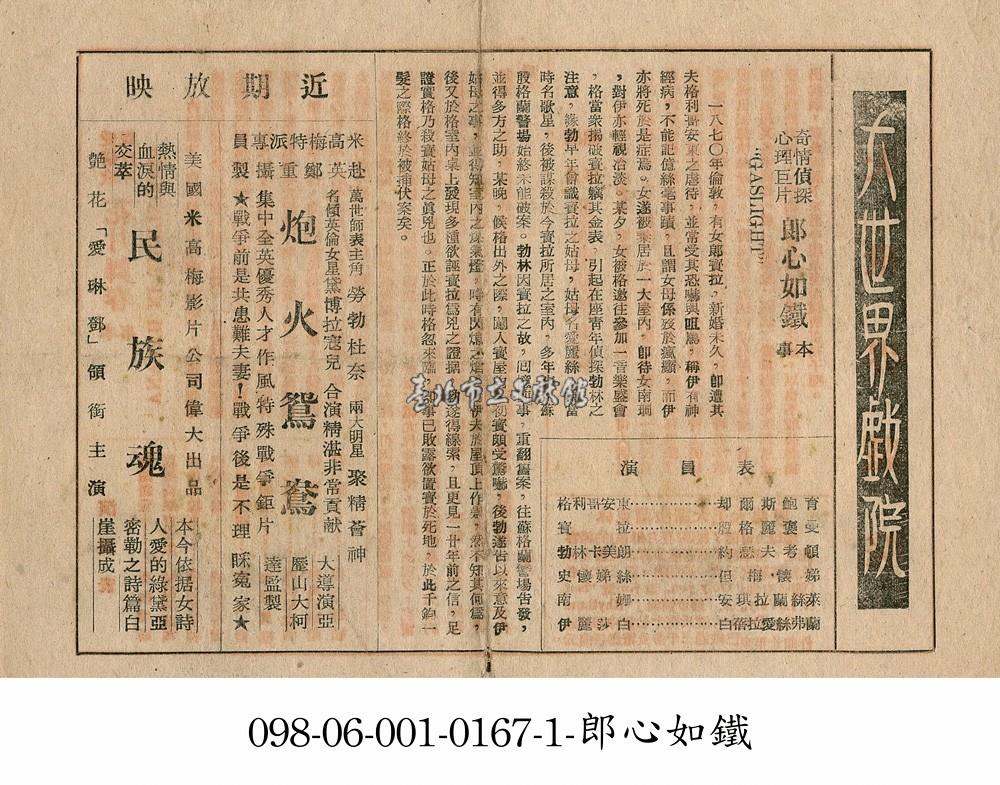 大世界戲院
奇情偵探
心理巨片
郎心如鐵
本事
"GASLIGHT"
一八七〇年倫敦，有女郎賽拉，新婚未久，卽遭其
夫格利哥安東之虐待，並常受其恐嚇與咀罵，稱伊有神
經病，不能記憶絲毫事蹟，且謂女母係歿於瘋癲，而伊
亦將死於是症焉。女遂被禁居於一大屋內，卽待女南珊
，對伊亦輕視冶淡，某夕，女被格邀往參加一音樂盛會
，格當衆揚破賽拉竊其金表，引起在座靑年偵探勃林之
注意，緣勃早年曾識賽拉之姑母，姑母名愛麗絲
時名歌星，後被謀殺於今賽拉所居之室內，多年
殷格蘭警場始終未能破案。勃林因賽拉之故，
重翻舊案，往蘇格蘭警場告發，
並得多方之助，某晚，候格出外之際，闖入賽屋
初賽頗受驚嚇，後勃遂告以來意及伊
姑母之事，並得知室內之煤氣燈，時有閃熄之
伊夫於屋頂上作祟，然不知其何爲，
後又於格室內桌上發現多種欲誣賽拉爲兇之證據
勃遂得線索，且更見一廿年前之信，足
證實格乃殺賽姑母之眞兇也。正於此時格忽來臨
事已敗露欲置賽於死地，於此千鈞一
髮之際格終於被捕伏案矣。
演員表
格利哥安東……却爾斯鮑育
賽拉……殷格麗褒曼
勃林卡美朗……約瑟夫，考頓
史懷娣絲……但梅，懷娣
南姍……安琪拉蘭絲萊
伊麗莎白……白蓓拉愛絲弗蘭
近期放映
米高梅特派專員
赴英鄭重攝製
萬世師表主角 勞勃杜奈
名傾英倫女星黛博拉寇兒
兩大明星 聚精薈神
合演精湛非常貢献
炮火鴛鴦
大導演亞
歷山大柯
達監製
集中全英優秀人才作風特殊戰爭鉅片
★戰爭前是共患難夫妻！戰爭後是不理睬寃家★
美國米高梅影片公司偉大出品
民族魂
熱情與
血淚的
交萃
本今依据女詩
人愛的綠黛亞
密勒之詩篇白
崖攝成
艷花「愛琳鄧」領銜主演
臺北市立文獻館
098-06-001-0167-1-郎心如鐵